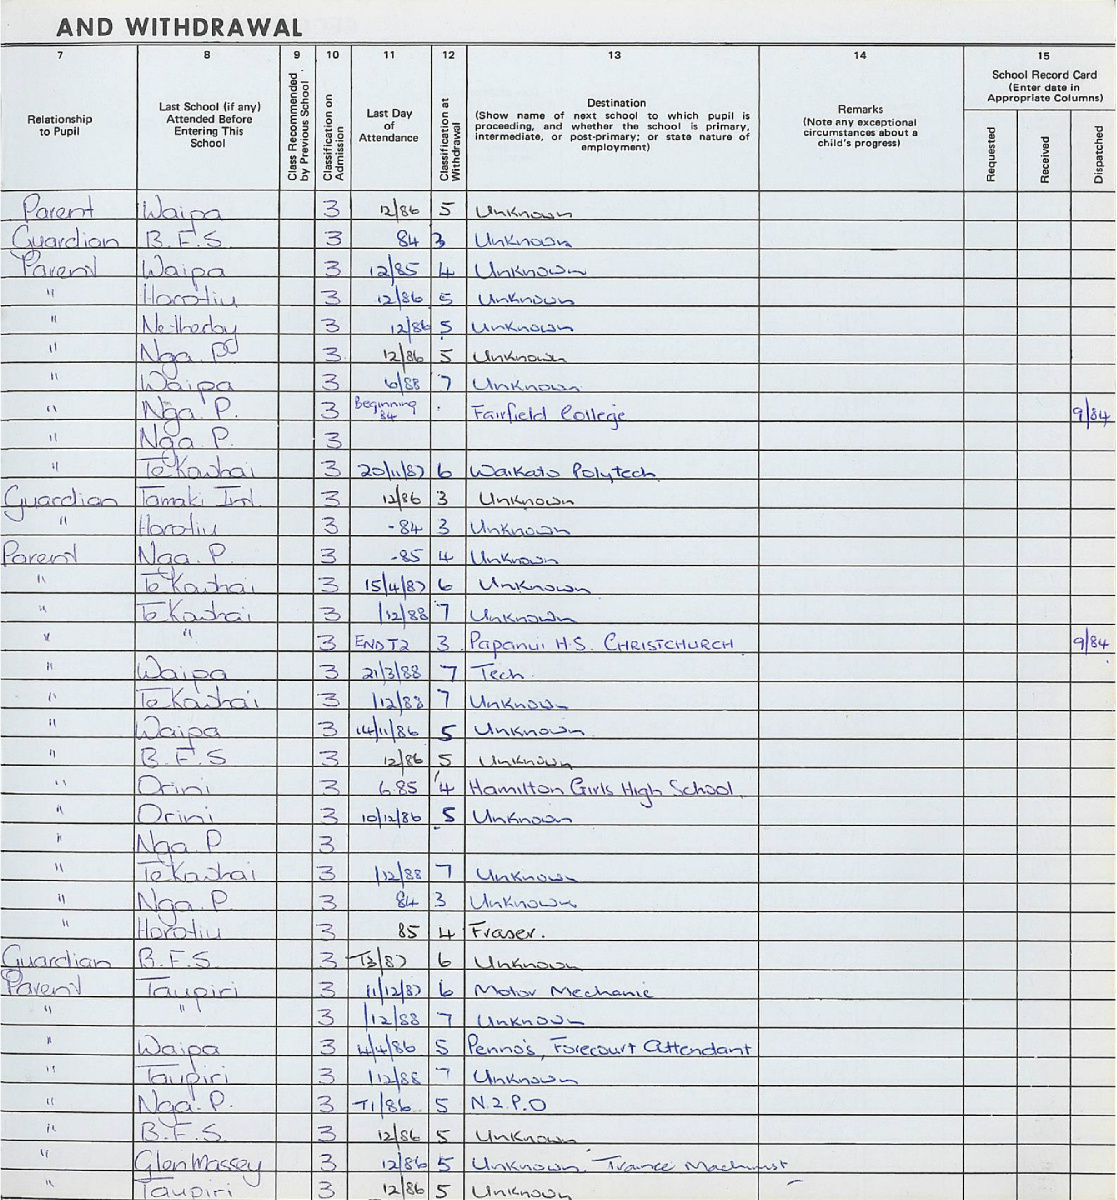 AND WITHDRAWAL
7 8 9 10 11 12 13 14 15
Relationship to Pupil
Last School (if any) Attended Before Entering This School
Class Recommended by Previous School
Classification on Admission
Last Day of Attendance
Classification at Withdrawal
Destination
(Show name of next school to which pupil is proceeding, and whether the school is primary, intermediate, or post-primary; or state nature of employment)
Remarks
(Note any exceptional circumstances about a child's progress)
School Record Card
(Enter date in Appropriate Columns)
Requested
Received
Dispatched
Parent Waipa 3 12/86 5 Unknown
Guardian B.F.S 3 84 3 Unknown
Parent Waipa 3 12/85 4 Unknown
" Horotiu 3 12/86 5 Unknown
" Netherby 3 12/86 5 Unknown
" Nga Pd 3 12/86 5 Unknown
" Waipa 3 6/88 7 Unknown
" Nga P. 3 Beginning 84 Fairfield College 9/84
" Nga P. 3
" Te Kowhai 3 20/11/87 6 Waikato Polytech
Guardian Tamaki Int. 3 12/86 3 Unknown
" Horotiu 3 -84 3 Unknown
Parent Nga. P. 3 -85 4 Unknown
" Te Kowhai 3 15/4/87 6 Unknown
" Te Kowhai 3 /12/88 7 Unknown
" " 3 END T2 3 Papanui H.S. CHRISTCHURCH 9/84
" Waipa 3 21/3/88 7 Tech.
" Te Kowhai 3 /12/88 7 Unknown
" Waipa 3 14/11/86 5 Unknown
" B.F.S 3 12/86 5 Unknown
" Orini 3 6.85 4 Hamilton Girls High School.
" Orini 3 10/12/86 5 Unknown
" Nga P 3
" Te Kowhai 3 /12/88 7 Unknown
" Nga P 3 84 3 Unknown
" Horotiu 3 85 4 Fraser.
Guardian B.F.S. 3 T3/87 6 Unknown
Parent Taupiri 3 11/12/87 6 Motor Mechanic
" " 3 /12/88 7 Unknown
" Waipa 3 4/4/86 5 Penno's, Forecourt Attendant
" Taupiri 3 /12/88 7 Unknown
" Nga. P. 3 T1/86 5 N.Z.P.O
" B.F.S 3 12/86 5 Unknown
" Glen Massey 3 12/86 5 Unknown
" Taupiri 3 12/86 5 Unknown